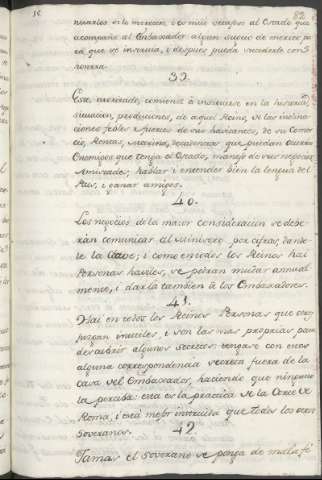 82
nuarlos si lo merecen, i es mui ventajoso al Estado que
acompañe al Embaxador algun sugeto de merito, pa
ra que se instruia, i despues pueda sucederle con
honrra.
39.
Este, embiado, comienze à instruirse en la historia,
situacion, producciones, de aquel Reino, de las inclina
ciones, flebles, i fuertes de sus havitantes, de su Comer
cio, Rentas, Marina,
Enemigos que tenga el Estado, manejo de sus negocios
Amistades, hablar i entender bien la lengua del
Pais, i ganar amigos.
40.
Los negocios de la maior consideracion se debe
ràn comunicar al Ministerio por cifras, dando
le la Clave; i como en todos los Reinos hai
Personas haviles, se podran mudar annual
mente, i darla tambien à los Embaxadores.
41.
Hai en todos los Reinos Personas que otros
juzgan inutiles, i son las mas proprias para
descubrir algunos secretos: tengase con estos
alguna correspondencia secreta fuera de la
casa del Embaxador, haciendo que ninguno
la perciba: esta es la practica de la Corte de
Roma, i està mejor instruida que todos los otros
Soveranos.
42
Jamas el Soverano se ponga de mala fé